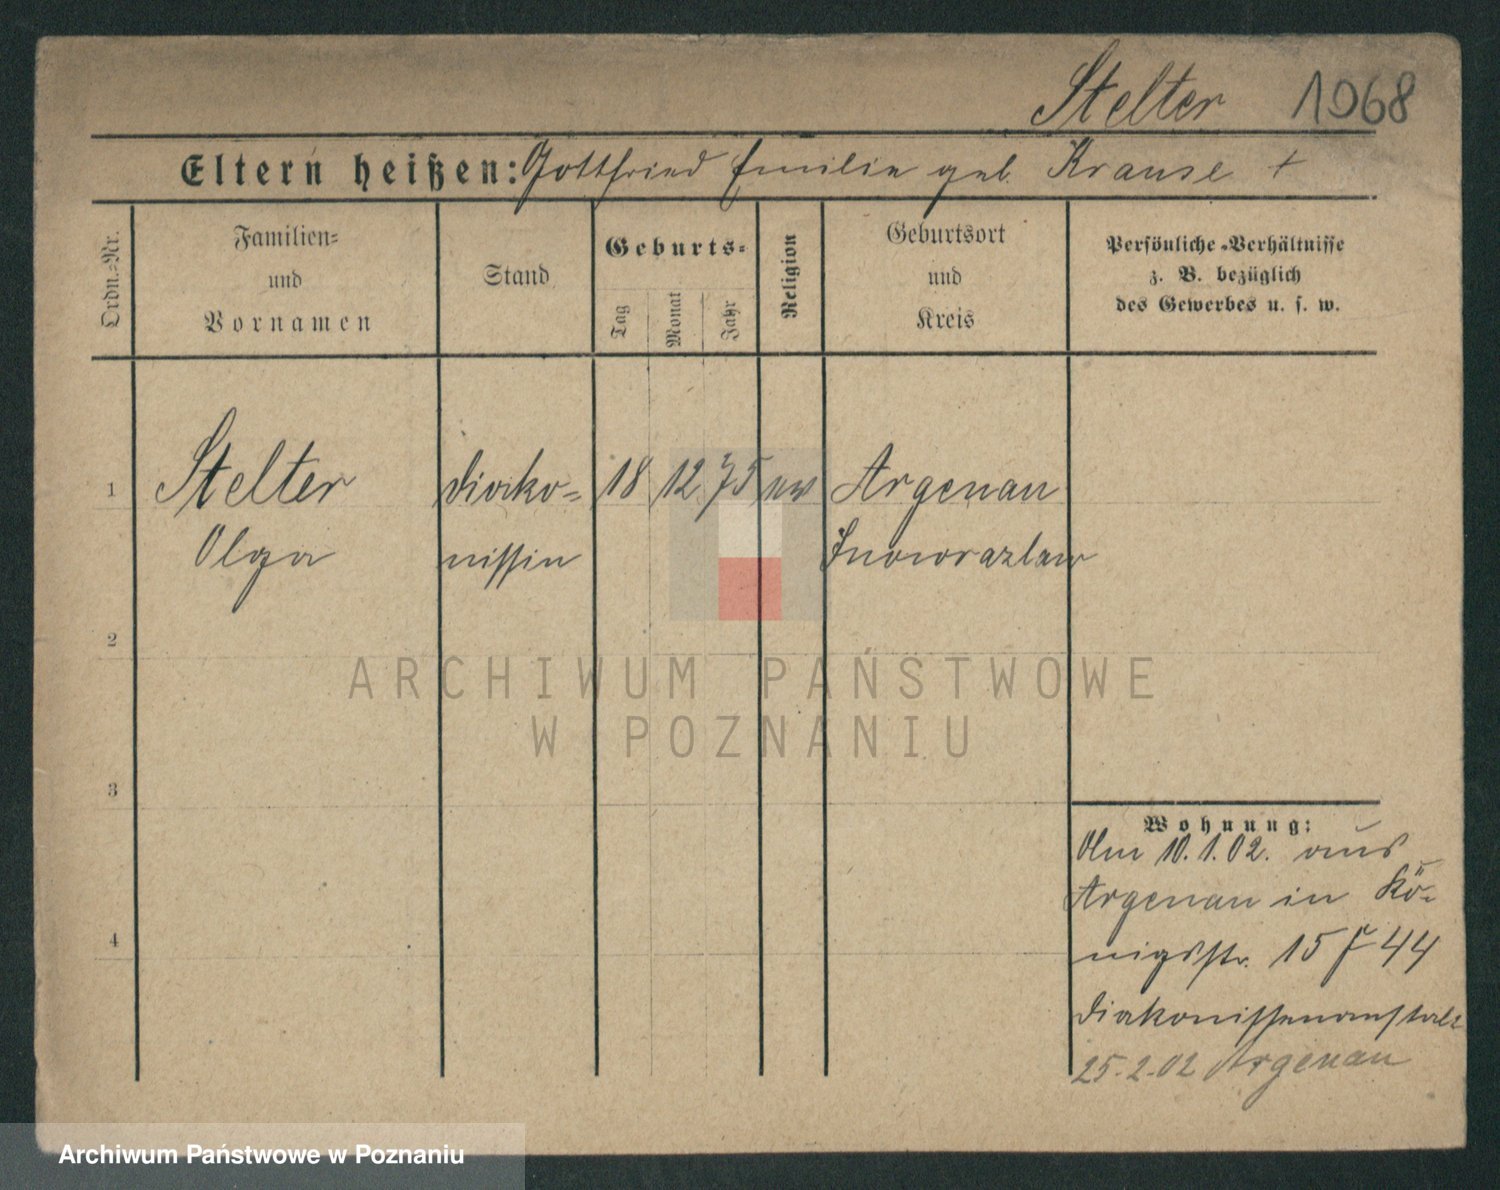 Stelter 1968
Eltern heißen: Gottfried Emilie geb. Krause +
Ordn.-Nr.
Familien-
und
Vornamen
Stand
Geburts-
Tag
Monat
Jahr
Religion
Geburtsort
und
Kreis
Persönliche Verhältnisse
z. B. bezüglich
des Gewerbes u. s. w.
1
Stelter
Olga
Diako-
nissin
18 12 75 ev
Argenau
Inowrazlaw
2
3
4
ARCHIWUM PAŃSTWOWE
W POZNANIU
Wohnung:
10.1.02. aus
Argenau in Kö-
nigsstr. 15 44
Diakonissenanstalt
25.2.02 Argenau
Archiwum Państwowe w Poznaniu